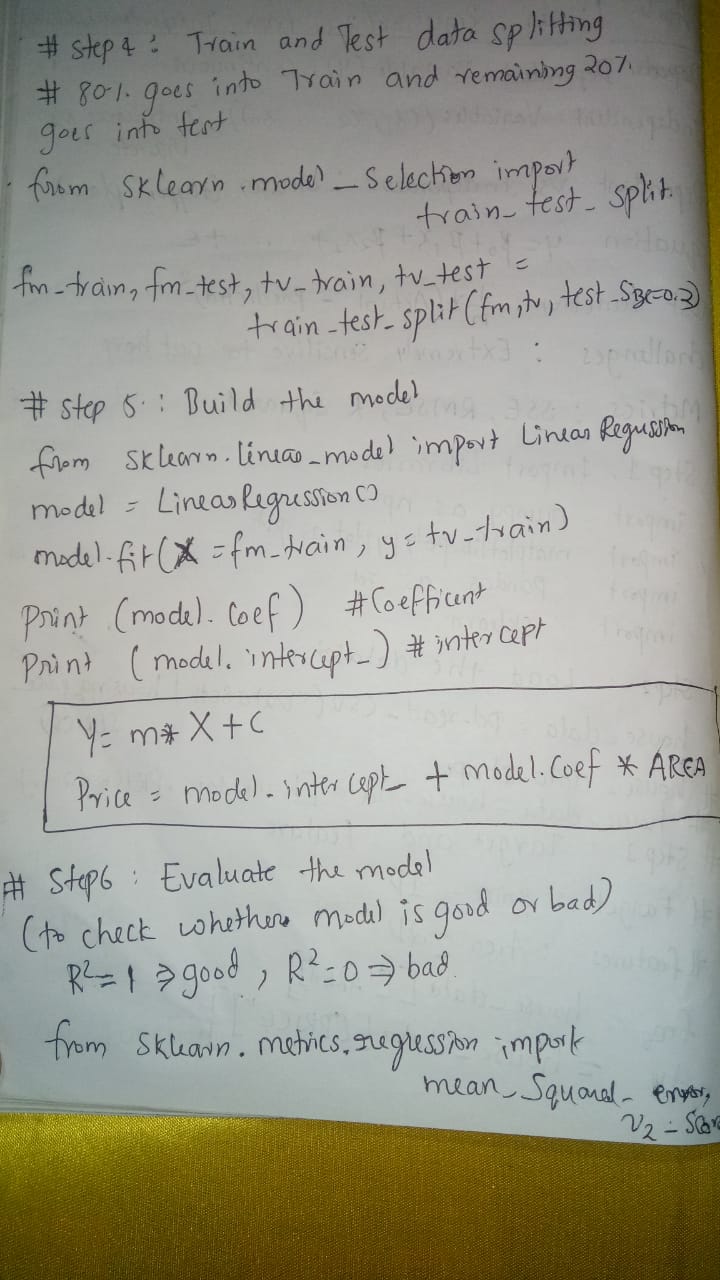 # Step 4 : Train and Test data splitting
# 80%. goes into Train and remaining 20%.
goes into test
from sklearn.model_Selection import
train_test_split.
fm_train, fm_test, tv_train, tv_test =
train_test_split(fm, tv, test_Size=0.2)
# Step 5 : Build the model
from sklearn.linear_model import Linear Regression
model = LinearRegression()
model.fit(X = fm_train, y = tv_train)
Print (model. Coef) #Coefficent
Print (model. intercept_) # intercept
Y= m* X + C
Price = model.intercept_ + model.Coef * AREA
# Step6 : Evaluate the model
(to check whether model is good or bad)
R²=1 ⇒ good, R²=0 ⇒ bad.
from Sklearn. metrics.regression import
mean_Squared_ error,
r2_